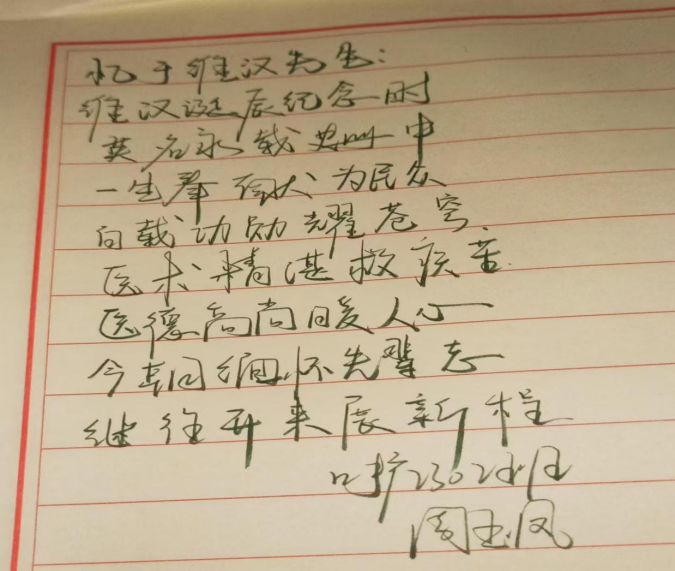 忆于维汉先生：
维汉诞辰纪念时
英名永载史册中
一生奉献为民众
百载功勋耀苍穹.
医术精湛救疾苦
医德高尚暖人心
今朝缅怀先辈志
继往开来展新程
护2302班
周玉凤